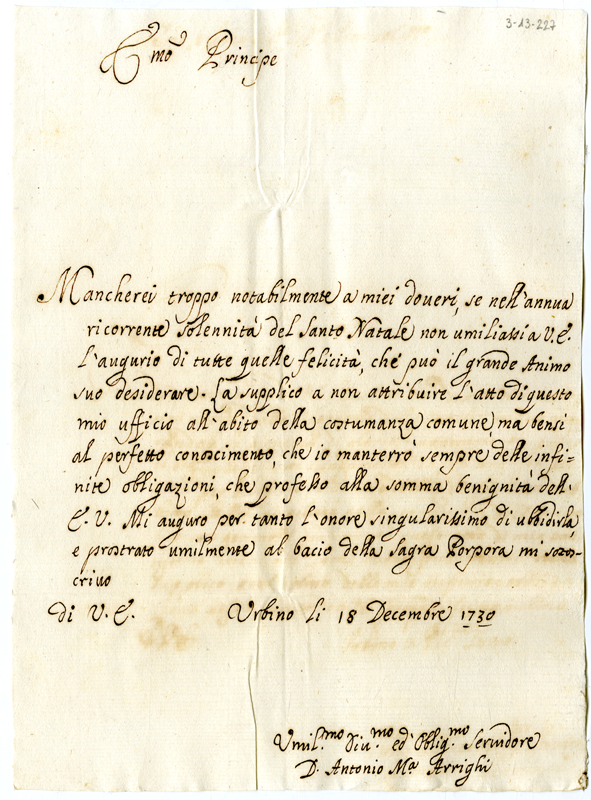 3-13-227
E.mo Principe
Mancherei troppo notabilmente a miei doveri, se nell'annua
ricorrente solennità del Santo Natale non umiliassi a V.E.
l'augurio di tutte quelle felicità, che può il grande Animo
suo desiderare. La supplico a non attribuire l'atto di questo
mio ufficio all'abito della costumanza comune, ma bensi
al perfetto conoscimento, che io manterrò sempre delle infi=
nite obligazioni, che professo alla somma benignità dell'
E.V. Mi auguro per tanto l'onore singularissimo di ubbidirla,
e prostrato umilmente al bacio della Sagra Porpora mi sotos-
crivo
di V.E. Urbino li 18 Decembre 1730
Umil.mo Div.mo ed Oblig.mo Servidore
D. Antonio M.a Arrighi